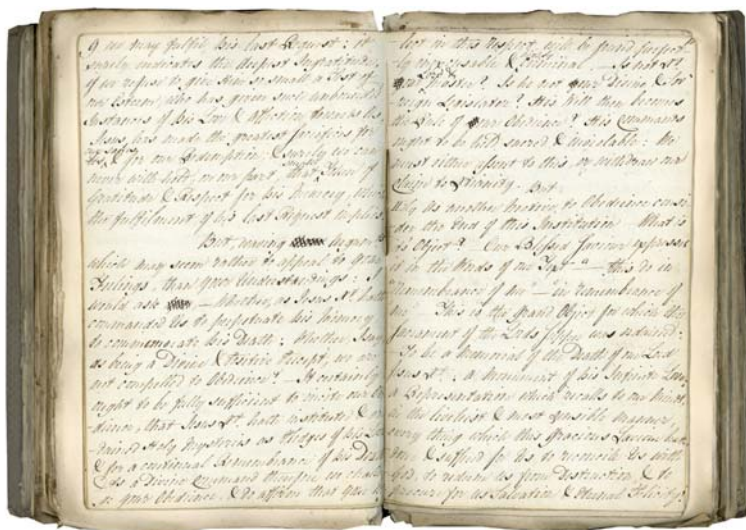 we may fulfil his last Request: it
surely indicates the deepest Ingratitude,
if we refuse to give Him so small a Test of
our Esteem, who has given such unbounded
Instances of his Love & affection towards us.
Jesus has made the greatest sacrifices for
& for our Redemption; & surely we can
never with-hold, on our part, that of
Gratitude & Respect for his Memory, which
the fulfilment of his last Request implies.
But, waving
which may seem rather to appeal to your
Feelings, than your Understandings: I
would ask — Whether, as Jesus Xt. hath
commanded Us to perpetuate his Memory &
to commemorate his Death; Whether,
as being a Divine & Positive Precept, we are
not compelled to Obedience? — It certainly
ought to be fully sufficient to our
, that Jesus Xt. hath instituted &
-dained Holy Mysteries as Pledges of his Love
& for a continual Remembrance of his Death
As a Divine Command therefore we
your Obedience, & do affirm that your
-lect in this Respect, will be found
inexcusable & Criminal. — Is not Xt.
Master? Is he not Divine &
-reign Legislator? His Will then becomes
the Rule of Obedience? His Commands
ought to be held sacred & inviolable: We
must either to this, or withdraw our
claim to . But
as another Motive, to Obedience consi-
der the End of this Institution — What is
its Object? Our Blessed Saviour expresses
it in the Words of our Text — "this do in
remembrance of me" — "in remembrance of
me. — This is the grand Object for which the
Sacrament of the Lords Supper was ordained:
To be a Memorial of the Death of our Lord
Jesus Xt.: a Monument of his Infinite Love:
a Representation which recalls to our Minds,
in the liveliest & most sensible manner,
every thing which this gracious Saviour hath
done & suffered for Us to reconcile Us with
God, to redeem us from Destruction & to
procure for us Salvation & Eternal Felicity.